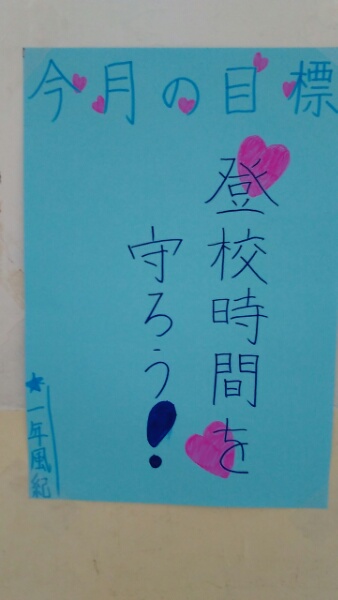 今月の目標
登校時間を
守ろう!
★一年風紀